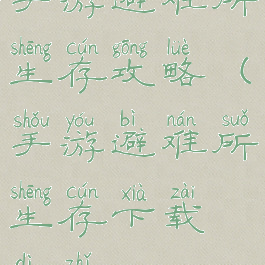 手游避难所
shēng cún gōng lüè
生存攻略（
shǒu yóu bì nán suǒ
手游避难所
shēng cún xià zài
生存下载
dì zhǐ